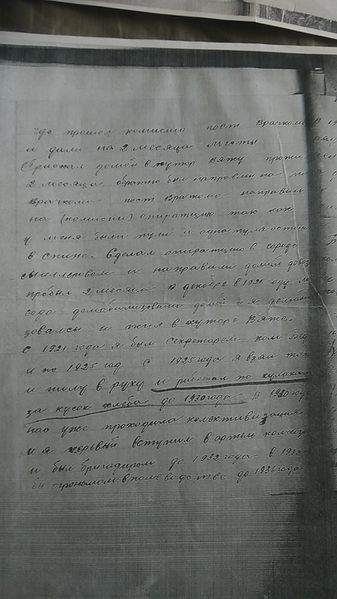 где прошол комисию пост Врачком
и дали на 2 месяца льготы
Приехал домой в хутор Вяжу прожи
2 месяца обратно был направлен на
Врачком пост Врачком направил
на (комисию) опирацию так как
у меня были пули и одна пуля оста
в спине. Сделал опирацию в городе
Сыллерово и направили домой
пробыл 2 месяца. А декабре в 1921 году
года домобилизовали домой и я демоби
зовался и жил в хуторе Вяжа.
С 1921 года я был секретарем
и по 1925 год. С 1925 года я взял
и пилу в руку и работал по кулакам
за кусок хлеба до 1930 года. В 1930 году
нас уже проходила колективизация
и я первый вступил в артель колхоз
и был бригадиром до 1932 года в 193
был агрономом в полеводстве до 1936 года